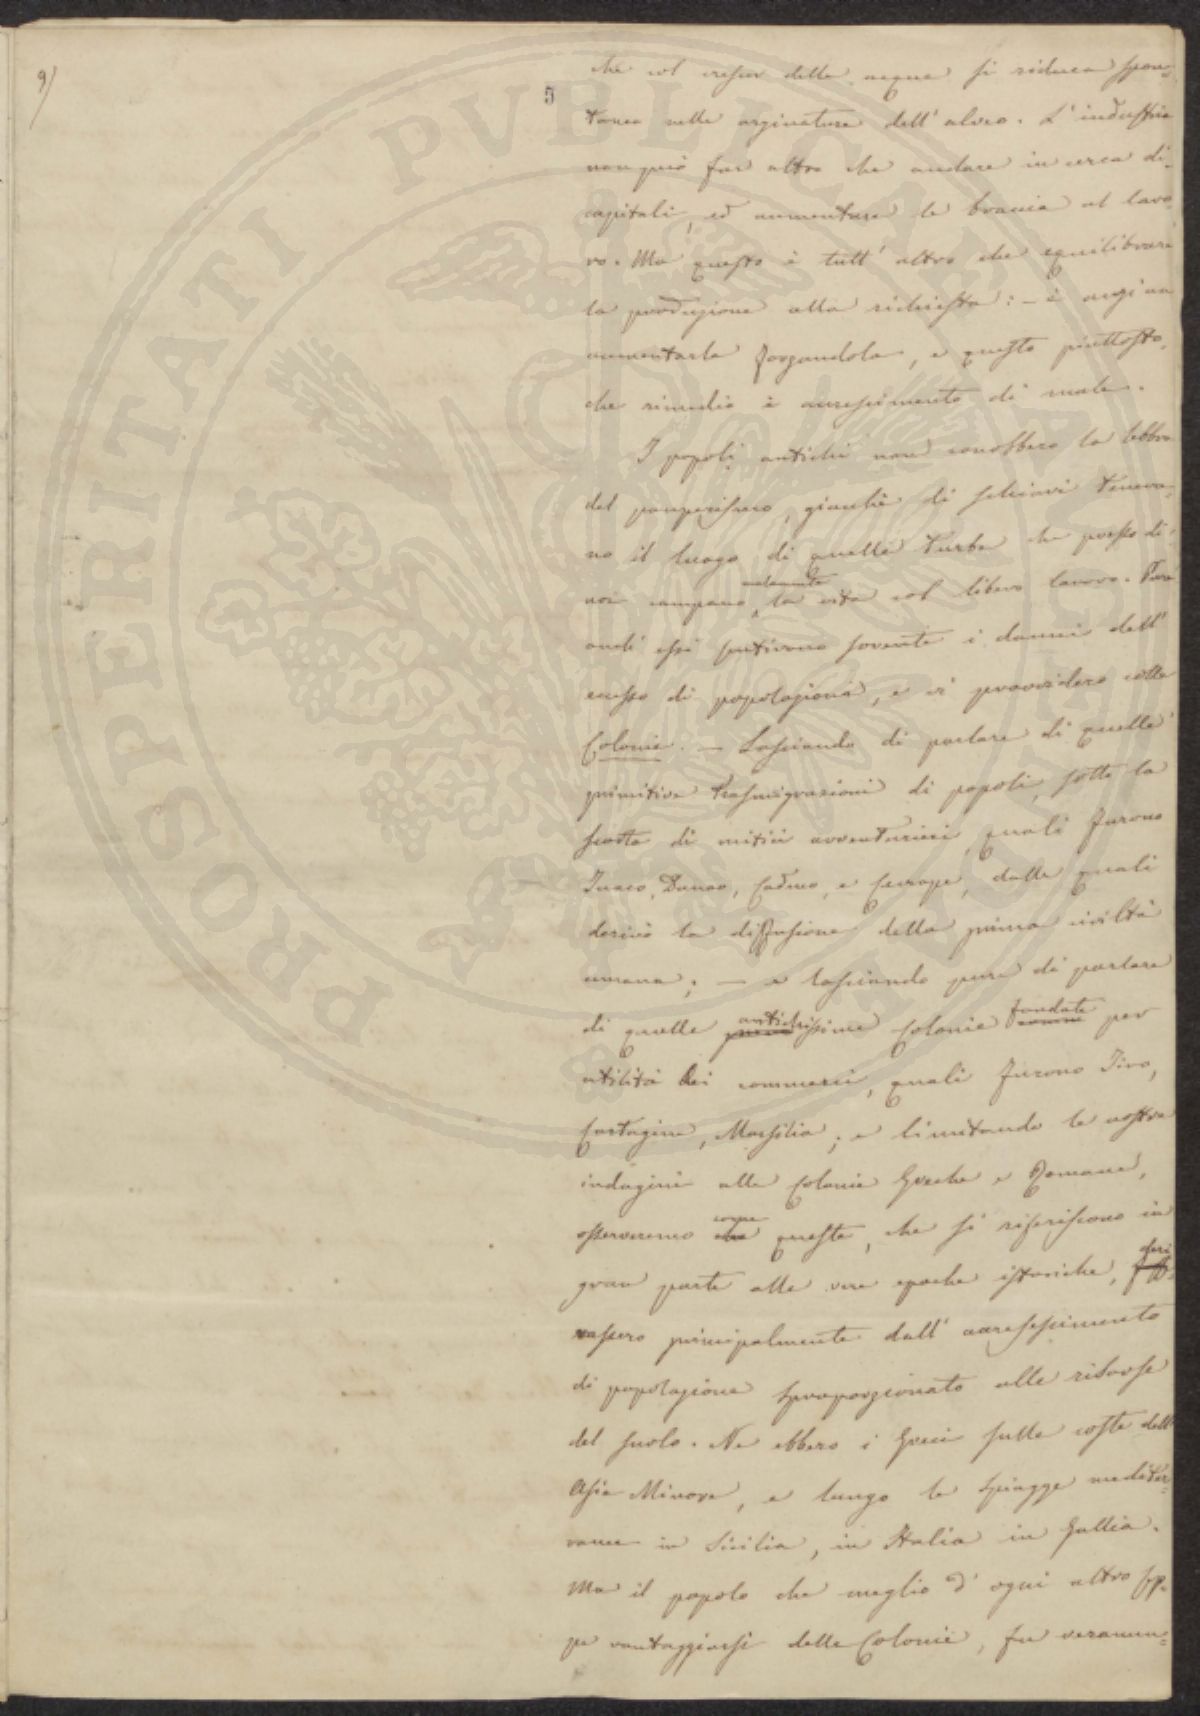 9)
5
che col crescer delle acque si riduca spon-
tanea nelle arginature dell'alveo. L'industria
non può far altro che andare in cerca di
capitali, ed aumentare le braccia al lavo-
ro. Ma questo è tutt'altro che equilibrare
la produzione alla richiesta: - è anzi un
aumentarla forzandola, e questo piuttosto,
che rimedio è accrescimento di male.
I popoli antichi non conobbero la lebbra
del pauperismo, giacchè gli schiavi teneva-
no il luogo di quelle turbe che presso di
noi campano la vita col libero lavoro. Pure
anch'essi sentirono sovente i danni dell'
eccesso di popolazione, e vi provvidero colle
Colonie. - Lasciando di parlare di quelle
primitive trasmigrazioni di popoli, sotto la
scorta di mitici avventurieri, quali furono
Inaco, Danao, Cadmo, e Cecrope, dalle quali
derivò la diffusione della prima civiltà
umana; - e lasciando pure di parlare
di quelle antichissime Colonie fondate per
utilità dei commerci, quali furono Tiro,
Cartagine, Marsilia; e limitando le nostre
indagini alle Colonie Greche e Romane,
osserveremo come queste, che si riferiscono in
gran parte alle vere epoche istoriche, deri-
vassero principalmente dall'accrescimento
di popolazione sproporzionato alle risorse
del suolo. Ne ebbero i Greci sulle coste dell'
Asia Minore, e lungo le spiagge mediter-
ranee in Sicilia, in Italia in Gallia.
Ma il popolo che meglio d'ogni altro sep-
pe vantaggiarsi delle Colonie, fu veramen-
PROSPERITATI PVBLICAE AVGENDAE